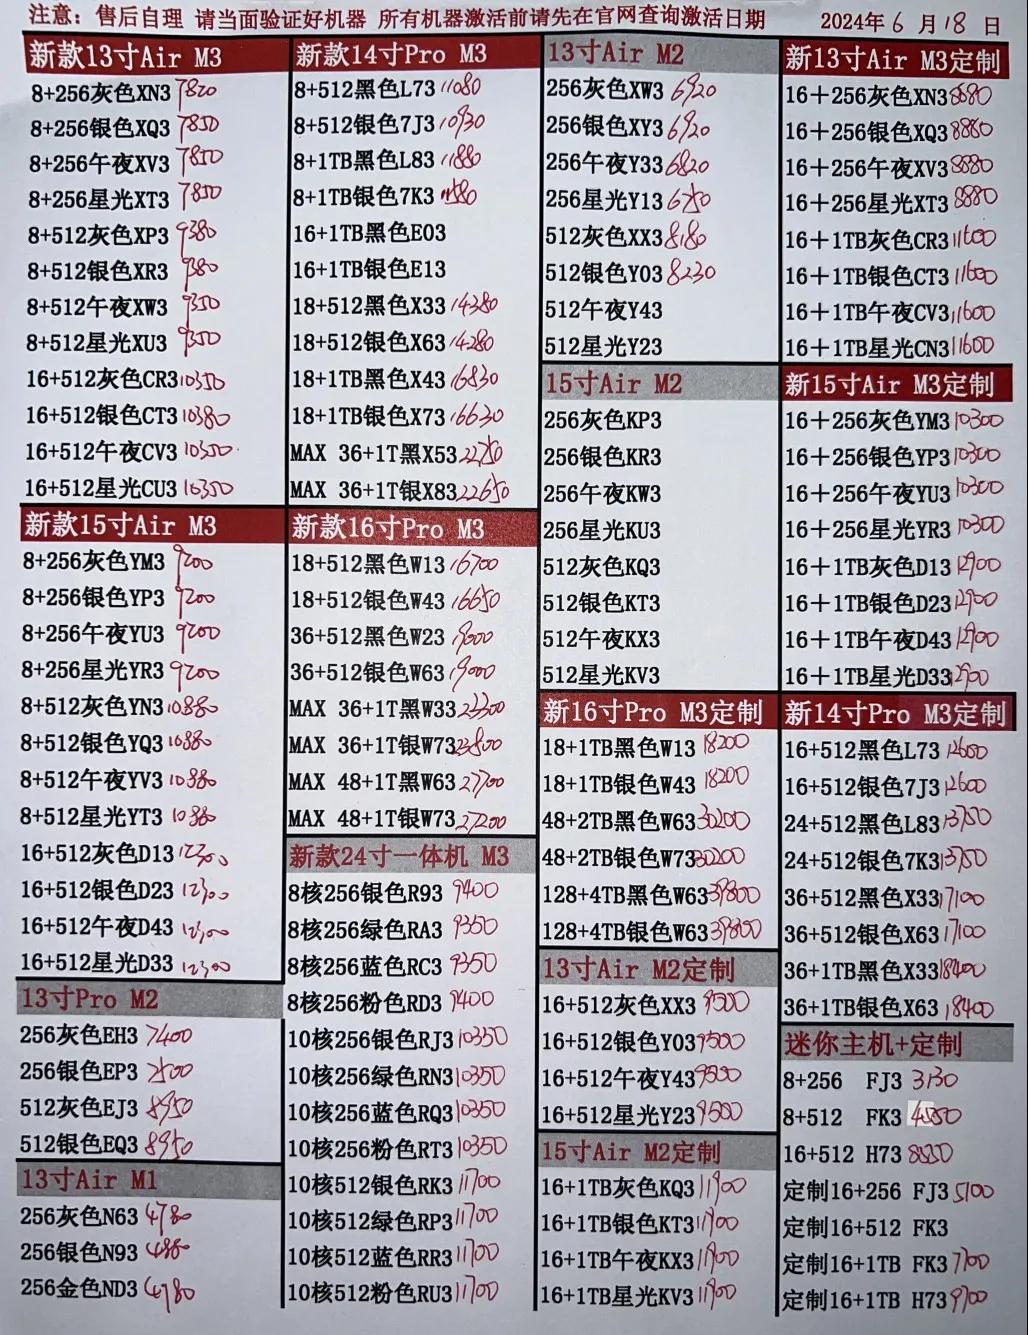 注意：售后自理 请当面验证好机器 所有机器激活前请先在官网查询激活日期 2024年6月18日
新款13寸Air M3
8+256灰色XN3 7820
8+256银色XQ3 7850
8+256午夜XV3 7850
8+256星光XT3 7850
8+512灰色XP3 9380
8+512银色XR3 9380
8+512午夜XW3 9350
8+512星光XU3 9350
16+512灰色CR3 10350
16+512银色CT3 10380
16+512午夜CV3 10350
16+512星光CU3 10350
新款15寸Air M3
8+256灰色YM3 9200
8+256银色YP3 9200
8+256午夜YU3 9200
8+256星光YR3 9200
8+512灰色YN3 10880
8+512银色YQ3 10880
8+512午夜YV3 10880
8+512星光YT3 10880
16+512灰色D13 12300
16+512银色D23 12300
16+512午夜D43 12300
16+512星光D33 12300
13寸Pro M2
256灰色EH3 7400
256银色EP3 7500
512灰色EJ3 8950
512银色EQ3 8950
13寸Air M1
256灰色N63 4780
256银色N93 4880
256金色ND3 4780
新款14寸Pro M3
8+512黑色L73 11080
8+512银色7J3 10930
8+1TB黑色L83 11880
8+1TB银色7K3
16+1TB黑色E03
16+1TB银色E13
18+512黑色X33 14380
18+512银色X63 14280
18+1TB黑色X43 16830
18+1TB银色X73 16630
MAX 36+1T黑X53 22750
MAX 36+1T银X83 22650
新款16寸Pro M3
18+512黑色W13 16700
18+512银色W43 16650
36+512黑色W23 19000
36+512银色W63 19000
MAX 36+1T黑W33 23300
MAX 36+1T银W73 23800
MAX 48+1T黑W63 27700
MAX 48+1T银W73 27200
新款24寸一体机 M3
8核256银色R93 9400
8核256绿色RA3 9350
8核256蓝色RC3 9350
8核256粉色RD3 9400
10核256银色RJ3 10350
10核256绿色RN3 10350
10核256蓝色RQ3 10350
10核256粉色RT3 10350
10核512银色RK3 11700
10核512绿色RP3 11700
10核512蓝色RR3 11700
10核512粉色RU3 11700
13寸Air M2
256灰色XW3 6920
256银色XY3 6920
256午夜Y33 6820
256星光Y13 6750
512灰色XX3 8180
512银色Y03 8230
512午夜Y43
512星光Y23
15寸Air M2
256灰色KP3
256银色KR3
256午夜KW3
256星光KU3
512灰色KQ3
512银色KT3
512午夜KX3
512星光KV3
新16寸Pro M3定制
18+1TB黑色W13 18200
18+1TB银色W43 18200
48+2TB黑色W63 30200
48+2TB银色W73 30200
128+4TB黑色W63 39800
128+4TB银色W63 39800
13寸Air M2定制
16+512灰色XX3 9500
16+512银色Y03 9500
16+512午夜Y43 9500
16+512星光Y23 9500
15寸Air M2定制
16+1TB灰色KQ3 11900
16+1TB银色KT3 11900
16+1TB午夜KX3 11900
16+1TB星光KV3 11900
新13寸Air M3定制
16＋256灰色XN3 8880
16＋256银色XQ3 8880
16＋256午夜XV3 8880
16＋256星光XT3 8880
16＋1TB灰色CR3 11600
16＋1TB银色CT3 11600
16＋1TB午夜CV3 11600
16＋1TB星光CN3 11600
新15寸Air M3定制
16＋256灰色YM3 10300
16＋256银色YP3 10300
16＋256午夜YU3 10300
16＋256星光YR3 10300
16＋1TB灰色D13 12900
16＋1TB银色D23 12900
16＋1TB午夜D43 12900
16＋1TB星光D33 12900
新14寸Pro M3定制
16+512黑色L73 12600
16+512银色7J3 12600
24+512黑色L83 13750
24+512银色7K3 13750
36+512黑色X33 17100
36+512银色X63 17100
36+1TB黑色X33 18400
36+1TB银色X63 18400
迷你主机+定制
8+256 FJ3 3130
8+512 FK3 4550
16+512 H73
定制16+256 FJ3 5100
定制16+512 FK3
定制16+1TB FK3 7700
定制16+1TB H73 9700